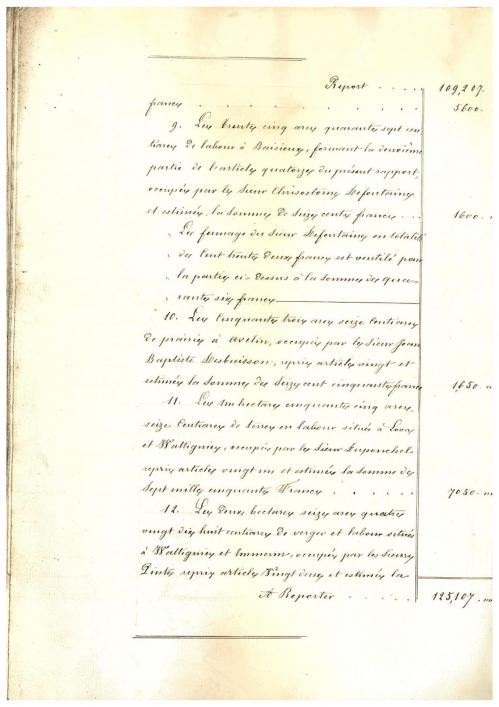 Report . . . . 109,207.
francs . . . . . . . . 5600.
9. Les trente cinq ares quarante sept cen
tiares de labour à Baisieux, formant la deuxième
partie de l'article quatorze du présent rapport,
occupés par le Sieur Chrisostôme Defontaine
et estimés la somme de Seize cents francs . . . 1600 . "
" Le fermage du Sieur Defontaine en totalité
" de Cent trente deux francs est ventilé pour
" la partie ci-dessus à la somme de qua-
" rante six francs
10. Les Cinquante trois ares seize Centiares
de prairie à Avelin, occupés par le Sieur Jean
Baptiste Desbuisson, repris article vingt et
estimés la somme de Seize cent cinquante francs 1,650 . "
11. Les un hectare cinquante cinq ares
seize Centiares de terre en labour situés à Loos
et Wattignies, occupés par le Sieur Duponchel
repris article vingt un et estimés la somme de
Sept mille cinquante Francs . . . . . 7050 . "
12. Les deux hectares seize ares quatre
vingt dix huit centiares de verger et labour situés
à Wattignies et Emmerin, occupés par le Sieur
Pinte repris article Vingt deux et estimés la
A Reporter . . . . . 125,107 . "